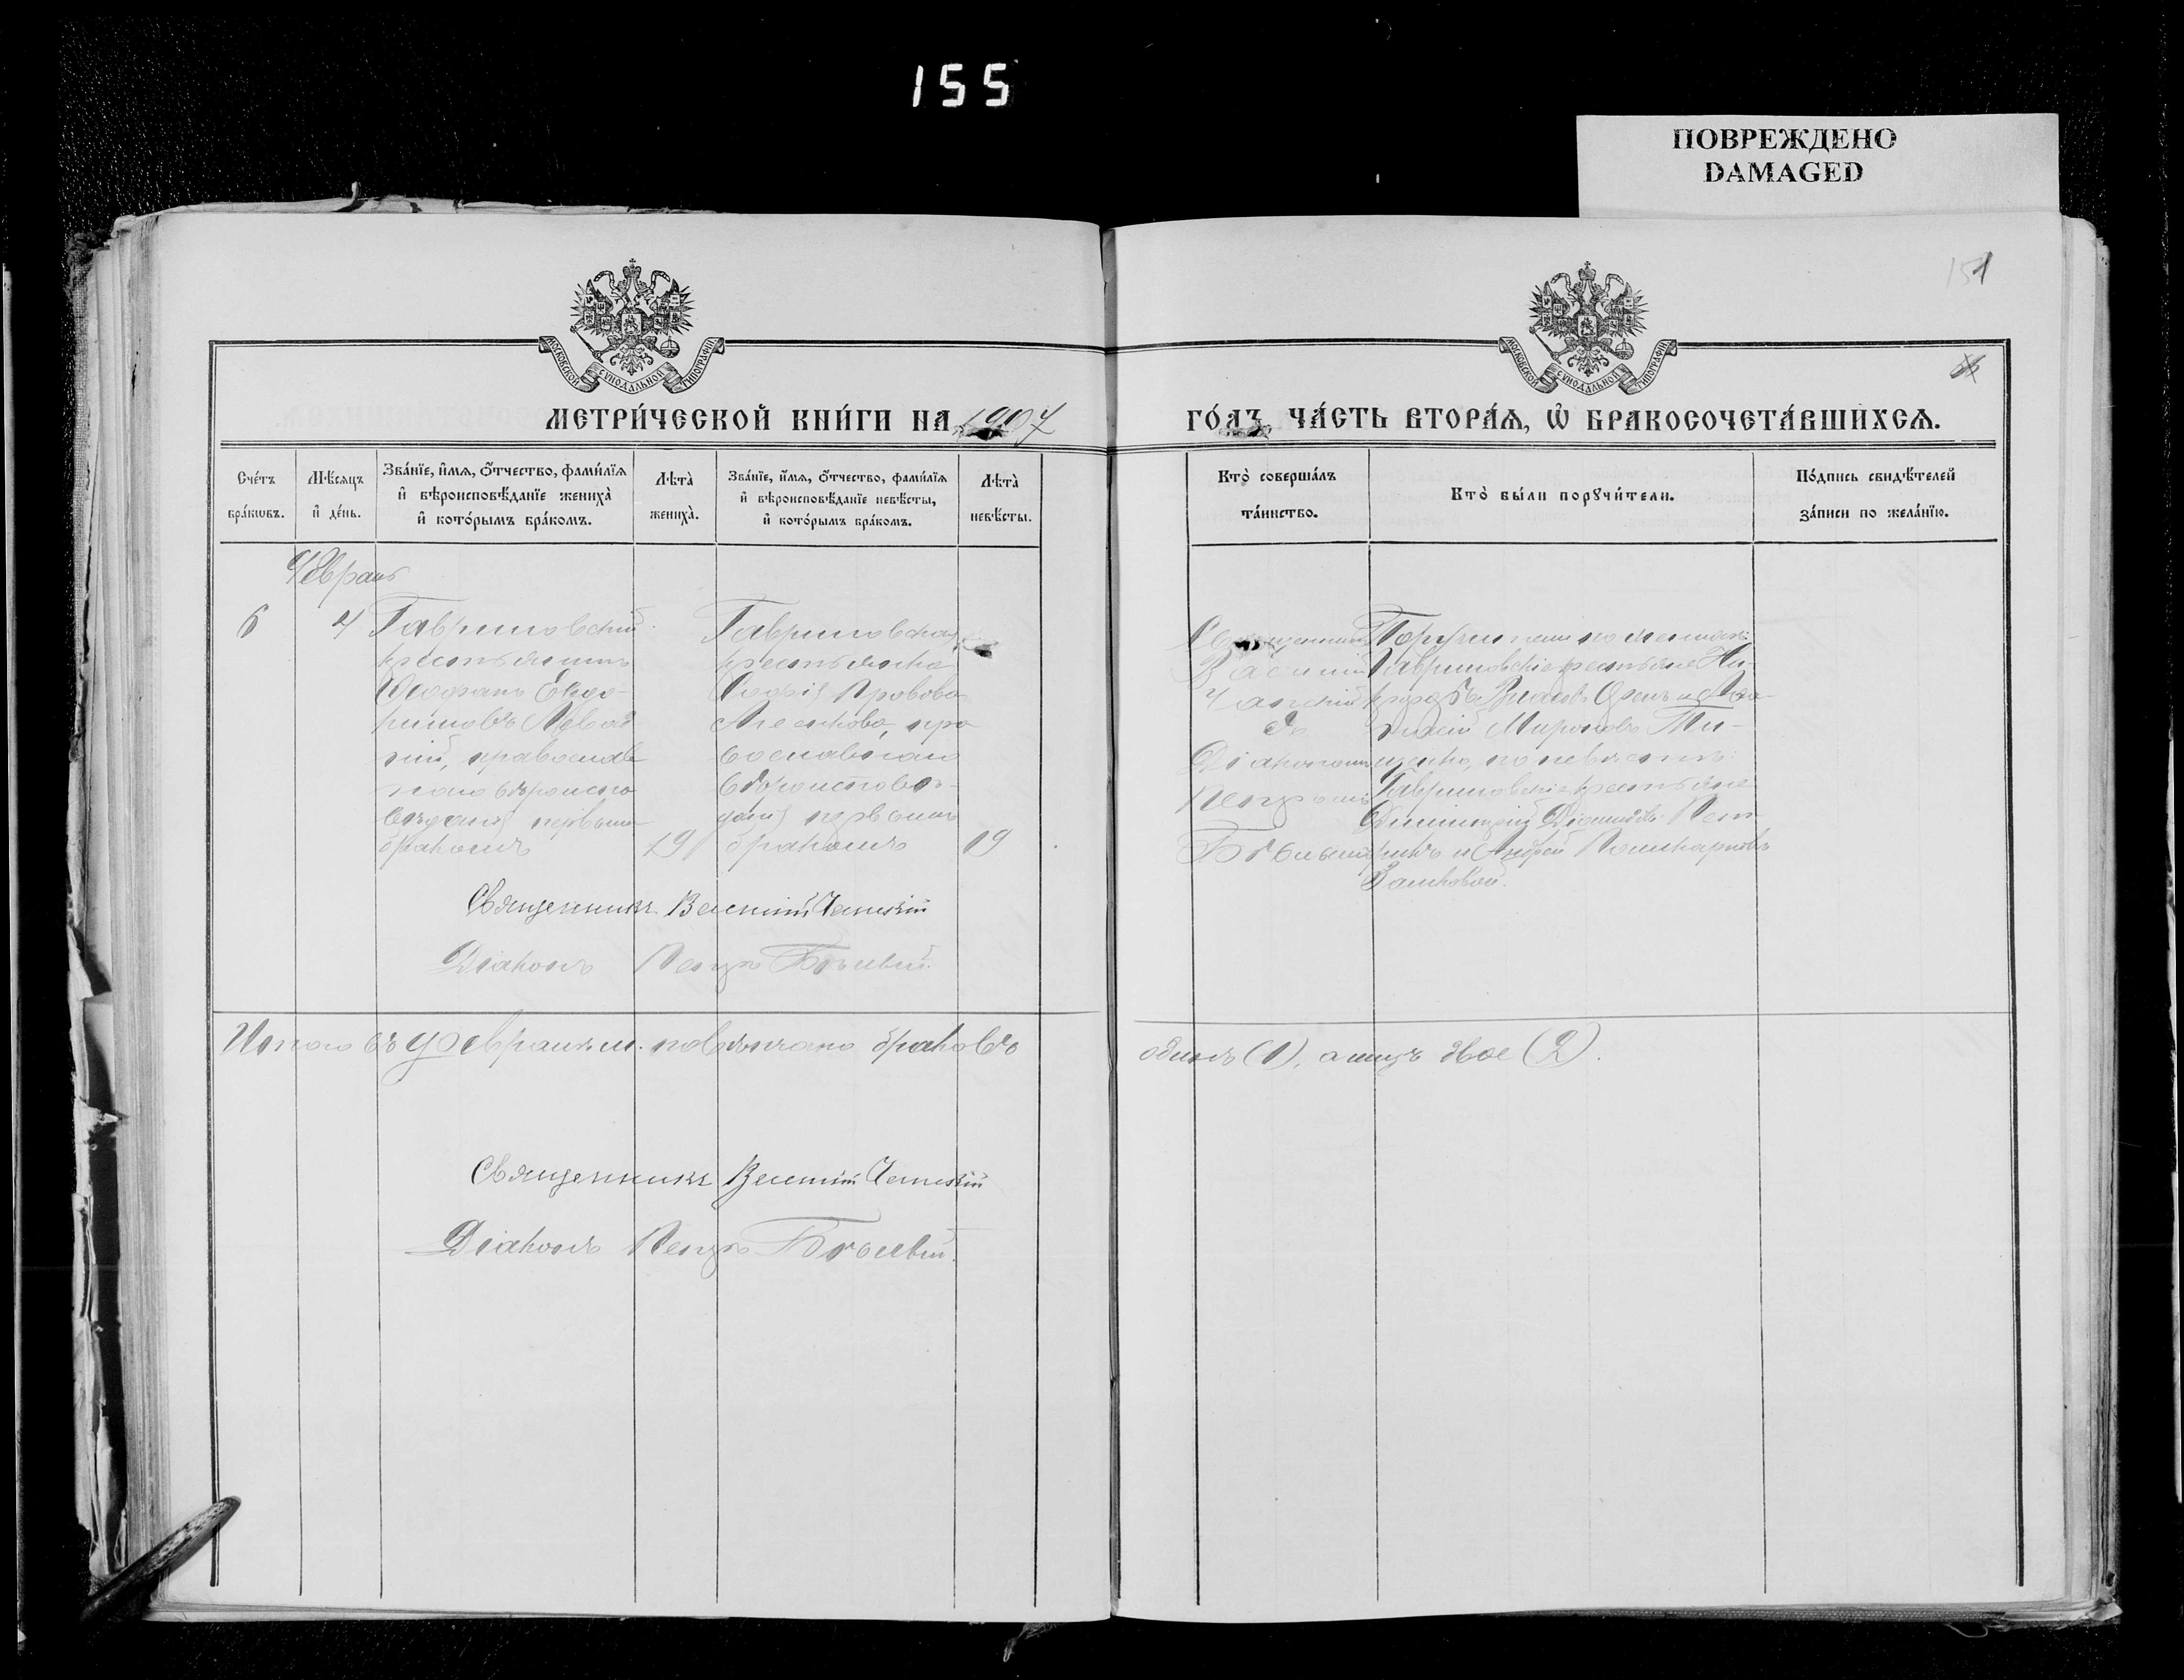 155
ПОВРЕЖДЕНО
DAMAGED
151
МОСКОВСКОЙ СѴНОДАЛЬНОЙ ТИПОГРАФІИ
МОСКОВСКОЙ СѴНОДАЛЬНОЙ ТИПОГРАФІИ
МЕТРИ́ЧЕСКОЙ КНИ́ГИ НА 1907
ГО́ДЪ, ЧА́СТЬ ВТОРА́Я, Ѡ БРАКОСОЧЕТА́ВШИХСѦ.
Сче́тъ
бра́кѡвъ.
Мѣ́сяцъ
и҆ де́нь.
Зва́нїе, и҆́мѧ, ѻ҆́тчество, фами́лїѧ
и҆ вѣроисповѣ́данїе жениха̀
и҆ кото́рымъ бра́комъ.
Лѣта̀
жениха̀.
Зва́нїе, и҆́мѧ, ѻ҆́тчество, фами́лїѧ
и҆ вѣроисповѣ́данїе невѣ́сты,
и҆ кото́рымъ бра́комъ.
Лѣта̀
невѣ́сты.
Кто̀ соверша́лъ
та́инство.
Кто̀ бы́ли порꙋчи́тели.
По́дпись свидѣ́телей
за́писи по жела́нїю.
Февраль
6
4
Гавриловскій
крестьянинъ
Ѳеофанъ Евдо-
кимовъ
православ
наго вѣроиспо
вѣданія первымъ
бракомъ
19
Гавриловская
крестьянка
Софія Провова
пра
вославнаго
вѣроисповѣ-
данія первымъ
бракомъ
19
Священникъ
Василій
съ
Діакономъ
Петромъ
Поручители по женихѣ:
Гавриловскіе крестьяне Ни-
Власовъ
Мироновъ Ти-
щенко, по невѣстѣ:
Гавриловскіе крестьяне
Димитрій
и Андрей Поликарповъ
Священникъ Василій
Діаконъ Петръ
Итого въ Февралѣ м. повѣнчано браковъ
одинъ (1), а лицъ двое (2).
Священникъ Василій
Діаконъ Петръ